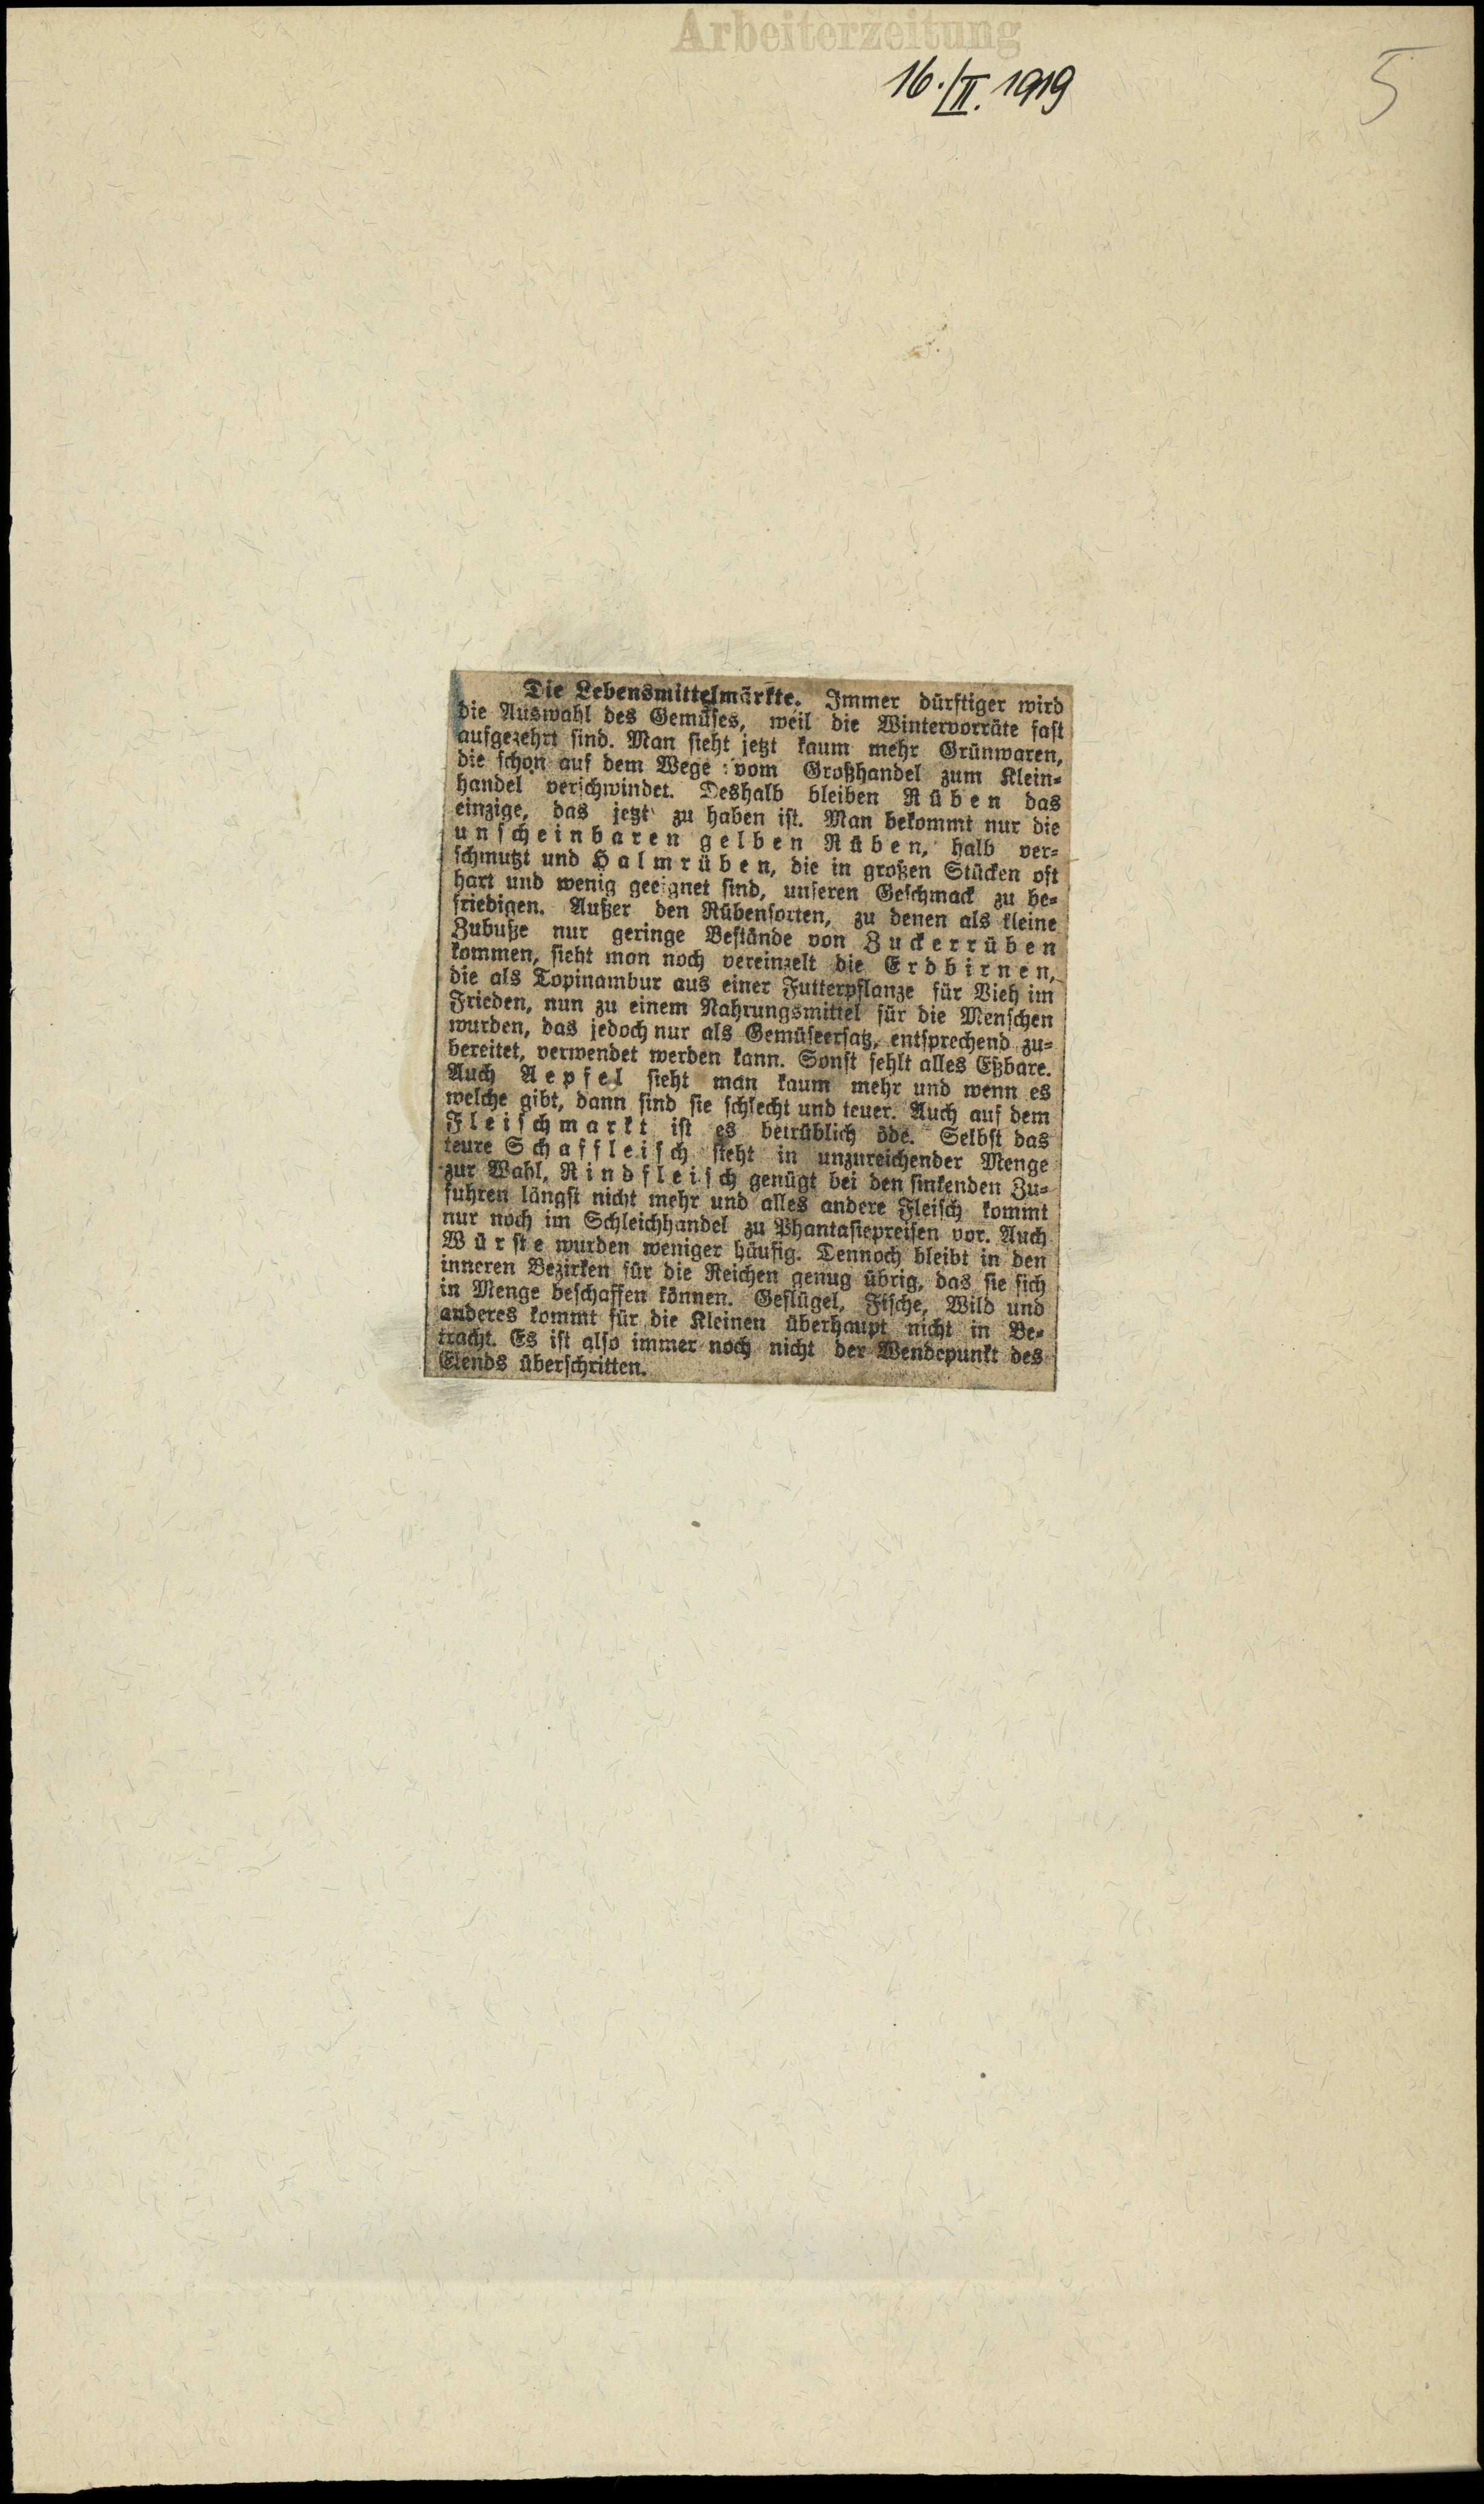 Arbeiterzeitung
16./II. 1919
5
Die Lebensmittelmärkte. Immer dürftiger wird
die Auswahl des Gemüses, weil die Wintervorräte fast
aufgezehrt sind. Man sieht jetzt kaum mehr Grünwaren,
die schon auf dem Wege vom Großhandel zum Klein-
handel verschwindet. Deshalb bleiben Rüben das
einzige, das jetzt zu haben ist. Man bekommt nur die
unscheinbaren gelben Rüben, halb ver-
schmutzt und Halmrüben, die in großen Stücken oft
hart und wenig geeignet sind, unseren Geschmack zu be-
friedigen. Außer den Rübensorten, zu denen als kleine
Zubuße nur geringe Bestände von Zuckerrüben
kommen, sieht man noch vereinzelt die Erdbirnen,
die als Topinambur aus einer Futterpflanze für Vieh im
Frieden, nun zu einem Nahrungsmittel für die Menschen
wurden, das jedoch nur als Gemüseersatz, entsprechend zu-
bereitet, verwendet werden kann. Sonst fehlt alles Eßbare.
Auch Aepfel sieht man kaum mehr und wenn es
welche gibt, dann sind sie schlecht und teuer. Auch auf dem
Fleischmarkt ist es betrüblich öde. Selbst das
teure Schaffleisch steht in unzureichender Menge
zur Wahl, Rindfleisch genügt bei den sinkenden Zu-
fuhren längst nicht mehr und alles andere Fleisch kommt
nur noch im Schleichhandel zu Phantasiepreisen vor. Auch
Würste wurden weniger häufig. Dennoch bleibt in den
inneren Bezirken für die Reichen genug übrig, das sie sich
in Menge beschaffen können. Geflügel, Fische, Wild und
anderes kommt für die Kleinen überhaupt nicht in Be-
tracht. Es ist also immer noch nicht der Wendepunkt des
Elends überschritten.